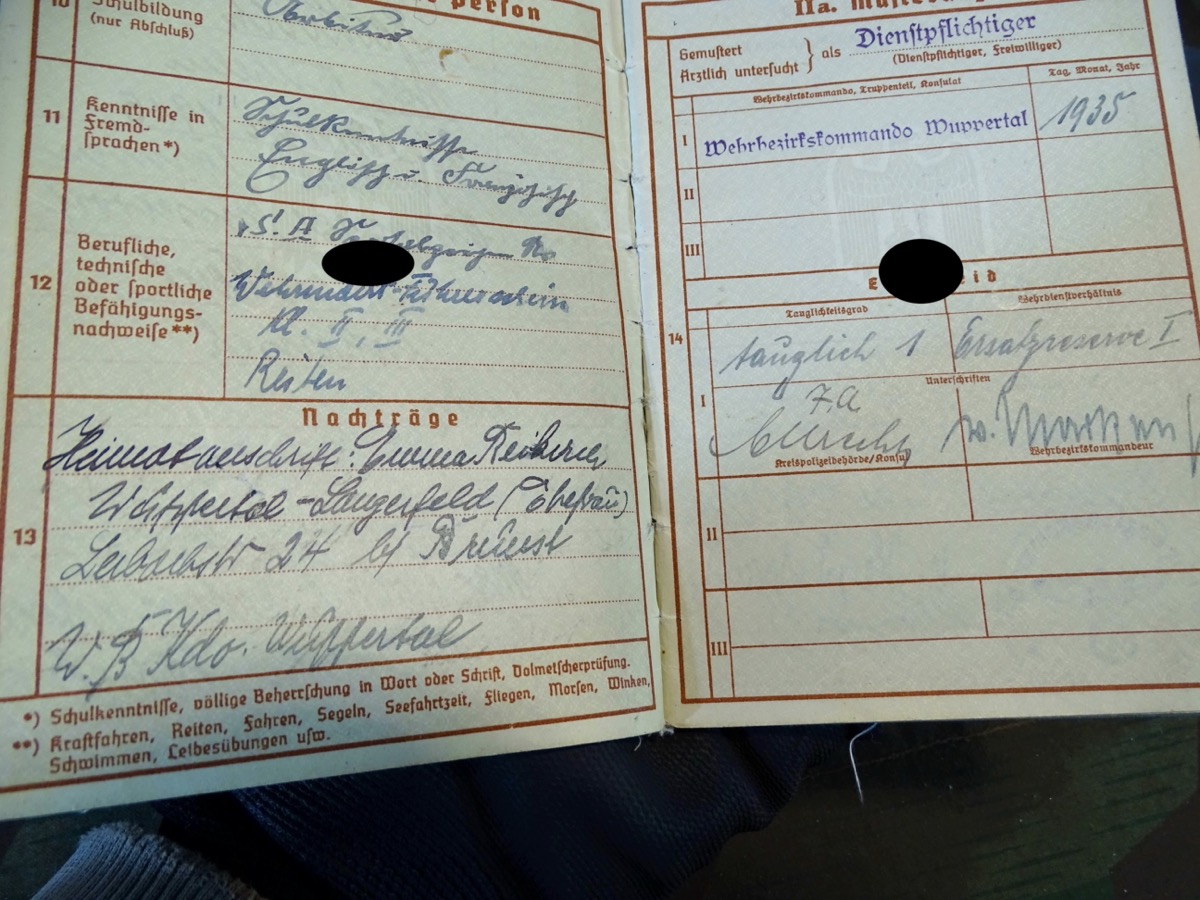 10
Schulbildung
(nur Abschluß)
person
11
Kenntnisse in
Fremd-
sprachen*)
Schulkenntnisse
Englisch u. Französisch
12
Berufliche,
technische
oder sportliche
Befähigungs-
nachweise**)
S. A.
Wehrmacht-Führerschein
Kl. II, III
Reiten
Nachträge
13
Heimatanschrift: Emma
Wuppertal-Langerfeld (Ehefrau)
24 b/
W. B Kdo. Wuppertal
*) Schulkenntnisse, völlige Beherrschung in Wort oder Schrift, Dolmetscherprüfung.
**) Kraftfahren, Reiten, Fahren, Segeln, Seefahrtzeit, Fliegen, Morsen, Winken,
Schwimmen, Leibesübungen usw.
IIa.
Gemustert
Ärztlich untersucht } als Dienstpflichtiger
(Dienstpflichtiger, Freiwilliger)
Wehrbezirkskommando, Truppenteil, Konsulat
Tag, Monat, Jahr
I Wehrbezirkskommando Wuppertal 1935
II
III
E eid
14
Tauglichkeitsgrad Wehrdienstverhältnis
tauglich 1 Ersatzreserve I
Unterschriften
I
Kreispolizeibehörde/Konsul Wehrbezirkskommandeur
II
III